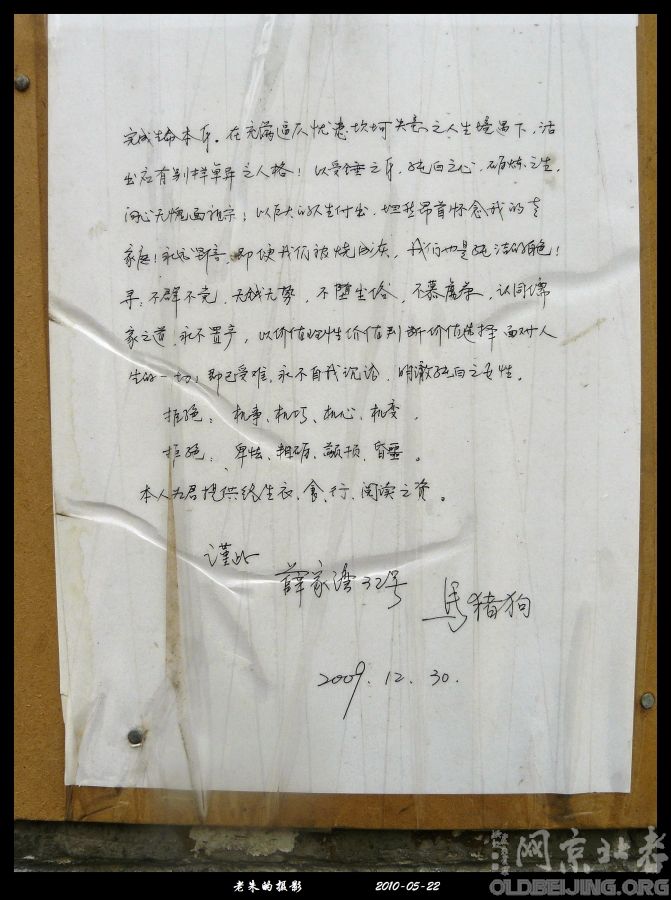 完成生命本身。在充满逼仄忧患坎坷失意之人生境遇下,活
出应有别样单异之人格!以受锤之身,纯白之心,砺炼之生,
问心无愧面祖宗;以巨大的人生付出,坦然昂首怀念我的
家庭!永远,即使我们被烧成灰,我们也是纯洁的白色!
寻:不群不党,无钱无势,不堕生俗,不慕虚荣,认同儒
家之道,永不置产,以价值理性价值判断价值选择面对人
生的一切;即已受难,永不自我沉沦,明澈纯白之女性。
拒绝:机事、机巧、机心、机变。
拒绝:卑怯、粗砺、颟顸、昏噩。
本人为君提供终生衣、食、行、阅读之资。
谨此
薛家湾32号 馬猪狗
2009.12.30.
老朱的摄影 2010-05-22
老北京网
OLDBEIJING.ORG